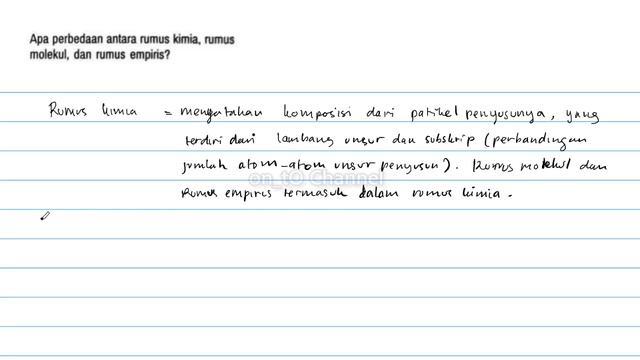 Apa perbedaan antara rumus kimia, rumus
molekul, dan rumus empiris?
Rumus kimia = menyatakan komposisi dari patikel penyusunya, yang
terdiri dari lambang unsur dan subskrip (perbandingan
jumlah atom-atom unsur penyusun). Rumus molekul dan
Rumus empiris termasuk dalam rumus kimia.
on_tO Channel